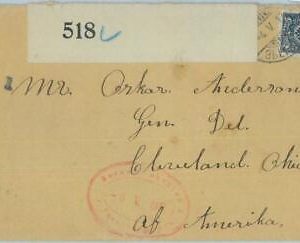 518
Mr. Oskar Anderson
Gen. Del.
Cleveland. Ohio
af Amerika.